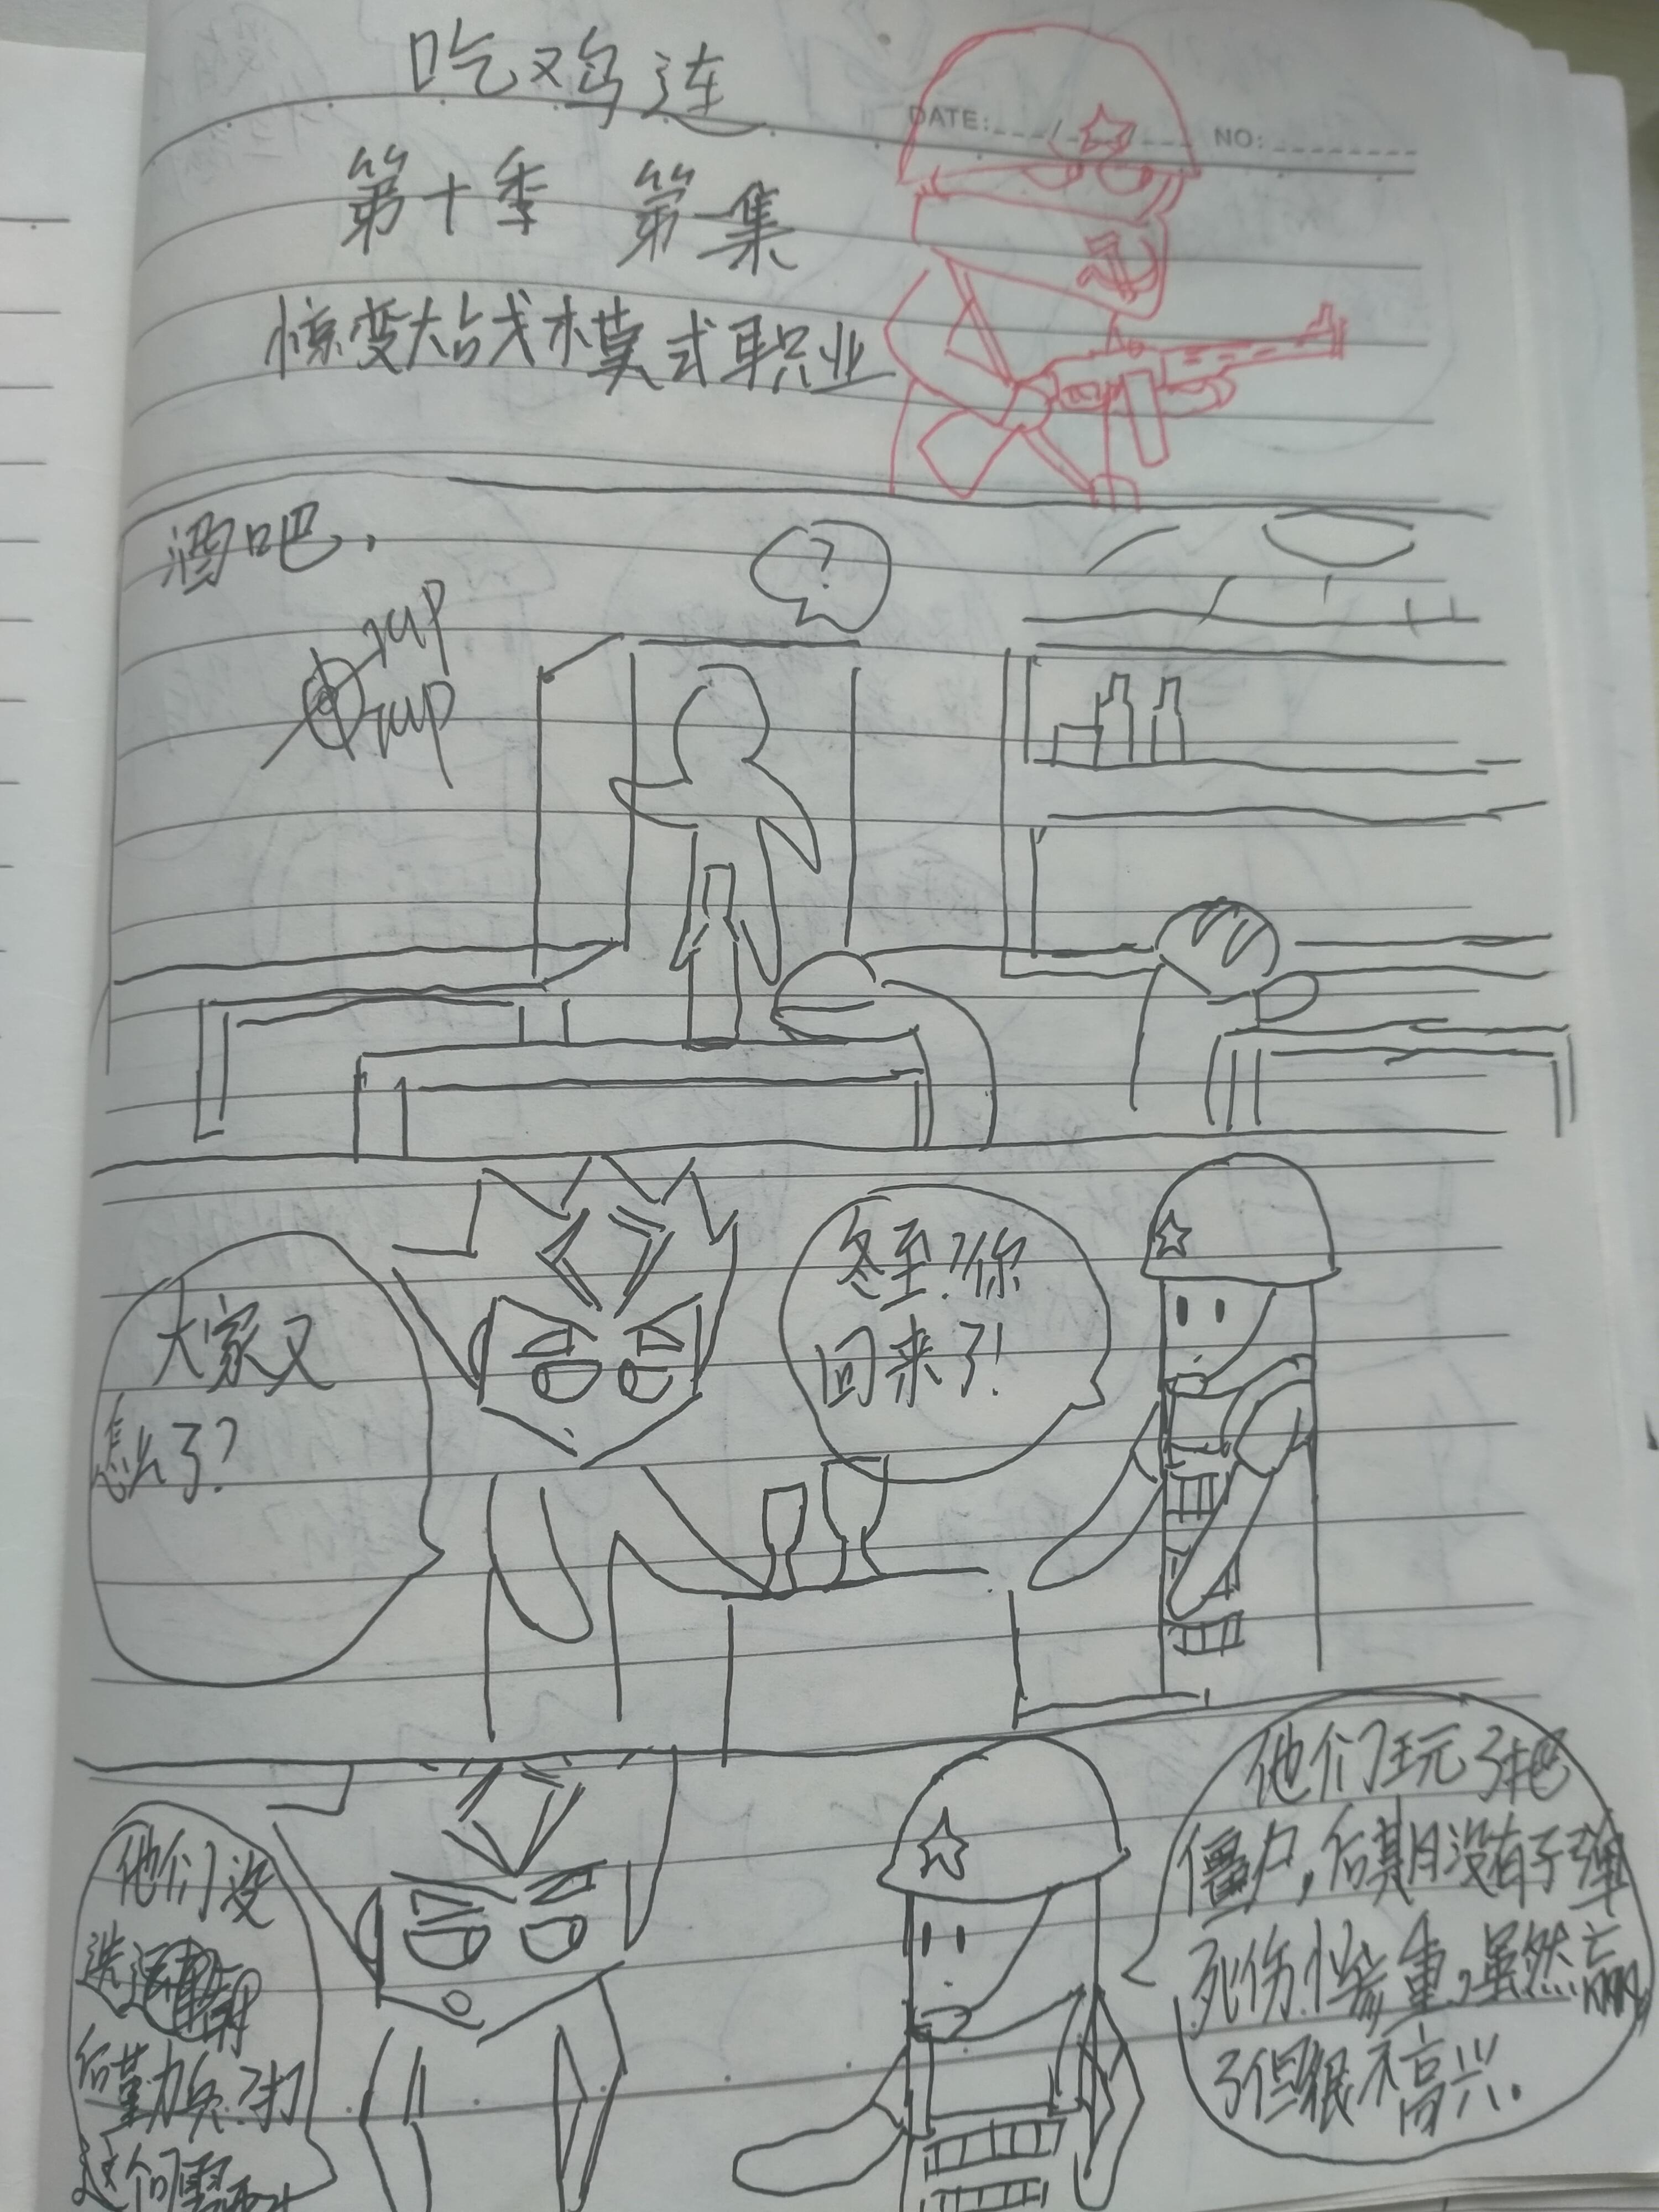 吃鸡连
DATE: / NO:
第十季 第一集
惊变大战模式职业
酒吧,
?
zup
zup
冬至?你
回来了!
大家又
怎么了?
他们玩了把
僵尸,后期没有子弹
死伤惨重,虽然赢
了但很不高兴.
他们没
选
后勤兵?打
这个需要